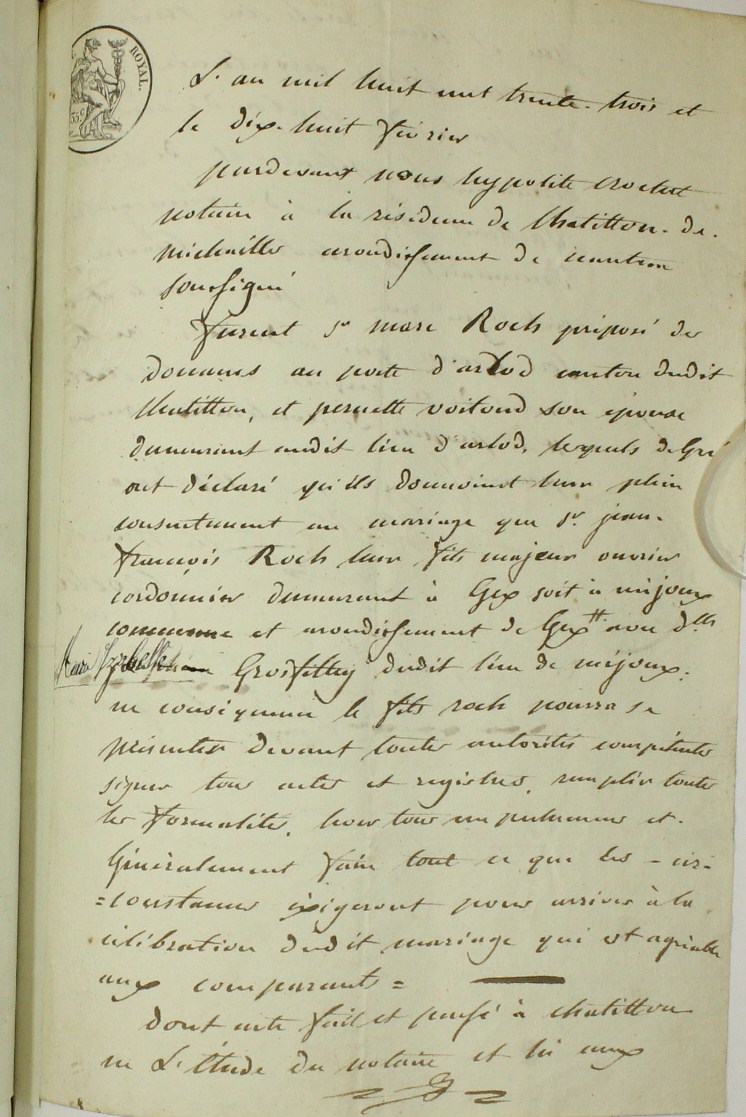 ROYAL.
35 c
L'an mil huit cent trente-trois et
le dix-huit février
pardevant nous hypolite
notaire à la résidence de Chatillon-de-
michaille arondissement de nantua
soussigné
furent sr marc Roch préposé des
douanes au poste d'arlod canton dudit
Chatillon, et pernette voitoud son épouse
demeurant audit lieu d'arlod, lesquels de Gré
ont déclaré qu'ils donnoient leur plein
consentement au mariage que sr jean-
françois Roch leur fils majeur ouvrier
cordonnier demeurant à Gex soit à mijoux
commune et arondissement de Gex avec dlle
Marie Grosfilley dudit lieu de mijoux.
en conséquence le fils roch pourra se
présenter devant toutes autorités compétentes
signer tous actes et registres, remplir toutes
les formalités, lever tous empechemens et
Généralement faire tout ce que les - cir-
=constances éxigeront pour arriver à la
célébration dudit mariage qui est agréable
aux comparants =
dont acte fait et passé à chatillon
en L'étude du notaire et lu aux